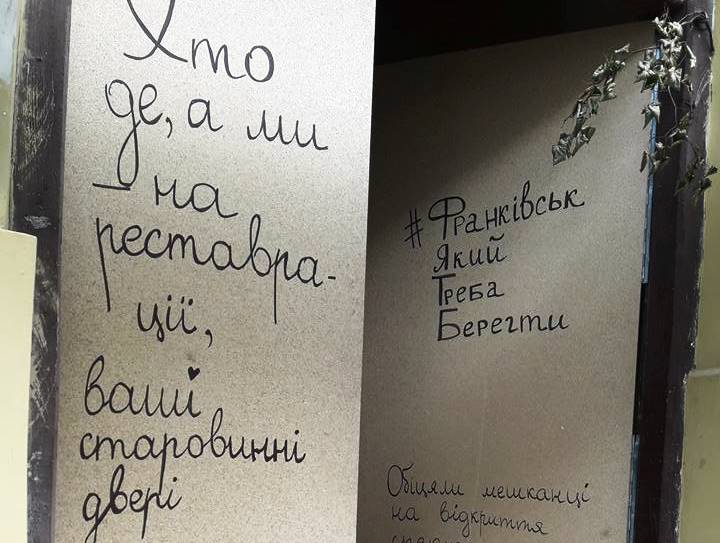 Хто
де, а ми
– на
реставра-
ції,
ваші
старовинні
двері
#Франківськ
Який
Треба
Берегти
Обіцяли мешканці
на відкриття